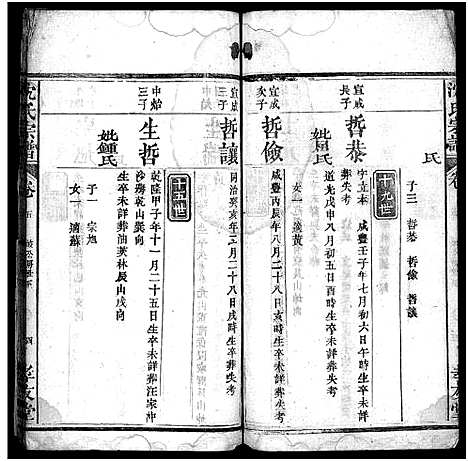 沈氏宗譜
卷
氏
子三 哲恭 哲儉 哲讓
十九世
宣成長子
哲恭
字立本 咸豐壬子年七月初六日午時生卒未詳
葬失考
妣周氏
道光戊申八月初五日酉時生卒葬失考
女一 適黃
宣成次子
哲儉
咸豐丙辰年八月二十八日亥時生卒葬失考
三子
哲讓
同治癸亥年三月二十八日戌時生卒葬失考
十九世
中始三子
生哲
乾隆甲子年十一月二十五日生卒未詳葬汪家沖
沙塝乾山巽向
妣鍾氏
生卒未詳葬油萊林辰山戌向
子一 宗旭
女一 適蘇
沈氏宗譜
卷
五
四
孝友堂